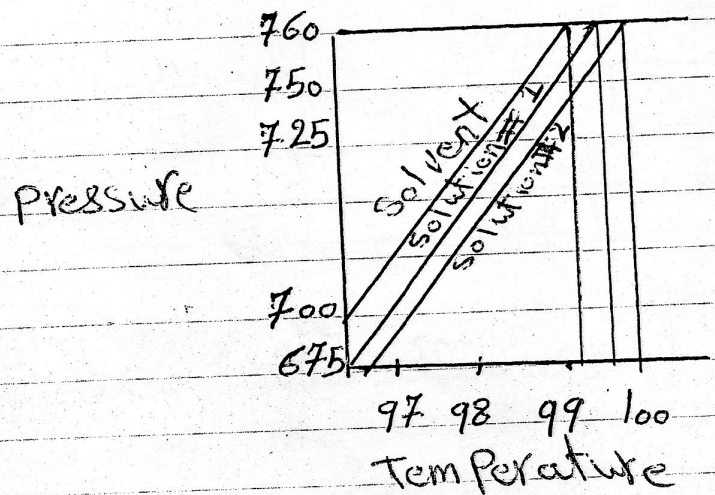 760
750
725
Pressure
700
675
Solvent
Solution # 1
Solution #2
97 98 99 100
Temperature